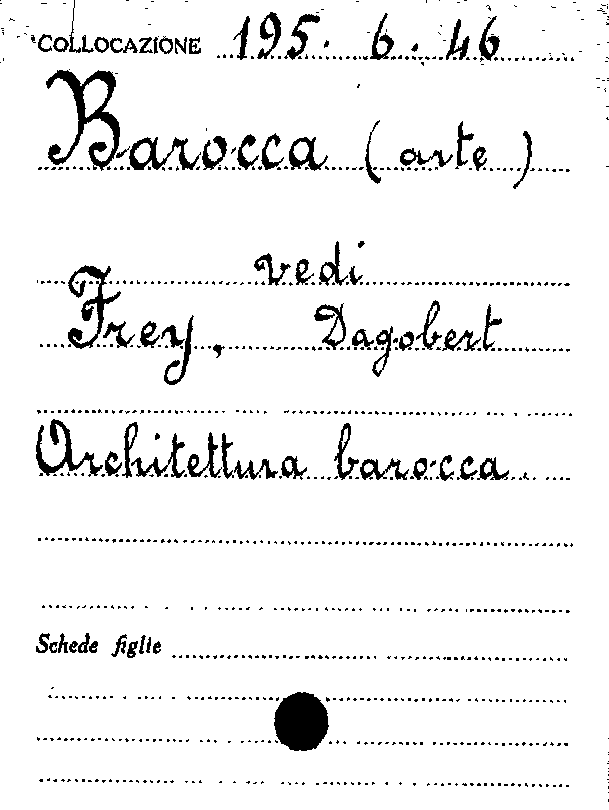 COLLOCAZIONE 195. 6. 46
Barocca (arte)
vedi
Frey, Dagobert
Architettura barocca.
Schede figlie